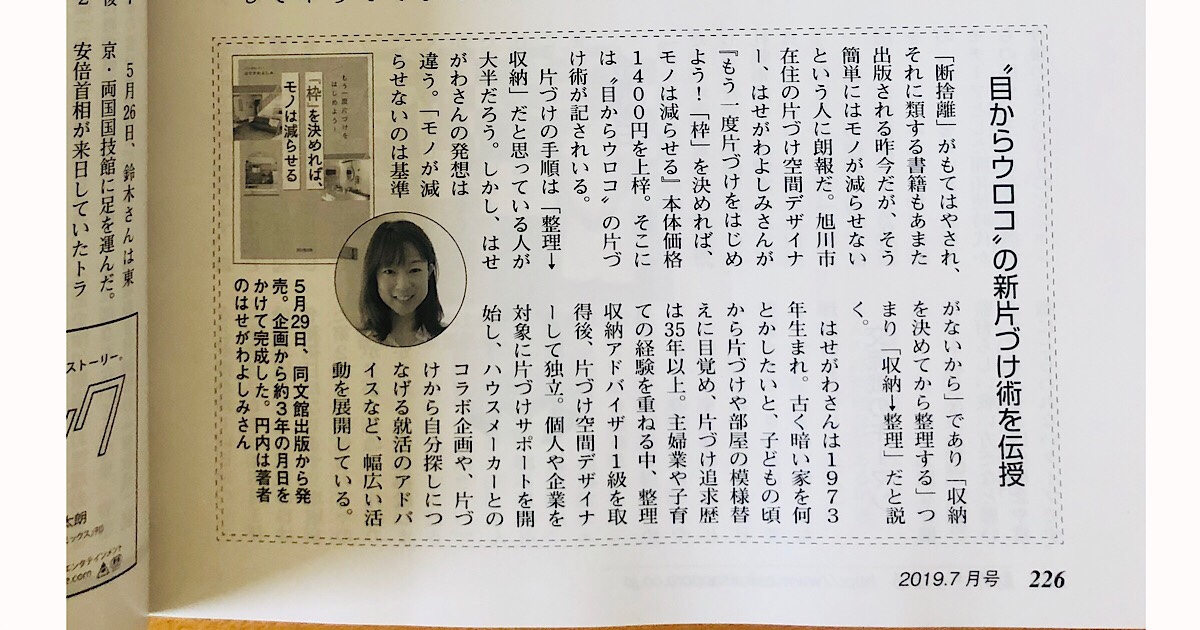 〝目からウロコ〟の新片づけ術を伝授
「断捨離」がもてはやされ、
それに類する書籍もあまた
出版される昨今だが、そう
簡単にはモノが減らせない
という人に朗報だ。旭川市
在住の片づけ空間デザイナ
ー、はせがわよしみさんが
『もう一度片づけをはじめ
よう!「枠」を決めれば、
モノは減らせる』本体価格
1400円を上梓。そこに
は〝目からウロコ〟の片づ
け術が記されいる。
片づけの手順は「整理→
収納」だと思っている人が
大半だろう。しかし、はせ
がわさんの発想は
違う。「モノが減
らせないのは基準
がないから」であり「収納
を決めてから整理する」つ
まり「収納→整理」だと説
く。
はせがわさんは1973
年生まれ。古く暗い家を何
とかしたいと、子どもの頃
から片づけや部屋の模様替
えに目覚め、片づけ追求歴
は35年以上。主婦業や子育
ての経験を重ねる中、整理
収納アドバイザー1級を取
得後、片づけ空間デザイナ
ーとして独立。個人や企業を
対象に片づけサポートを開
始し、ハウスメーカーとの
コラボ企画や、片づ
けから自分探しにつ
なげる就活のアドバ
イスなど、幅広い活
動を展開している。
もう一度片づけを
はじめよう!
「枠」を決めれば、
モノは減らせる
5月29日、同文館出版から発
売。企画から約3年の月日を
かけて完成した。円内は著者
のはせがわよしみさん
5月26日、鈴木さんは東
京・両国国技館に足を運んだ。
安倍首相が来日していたトラ
ストーリー。
太朗
2019.7月号
226